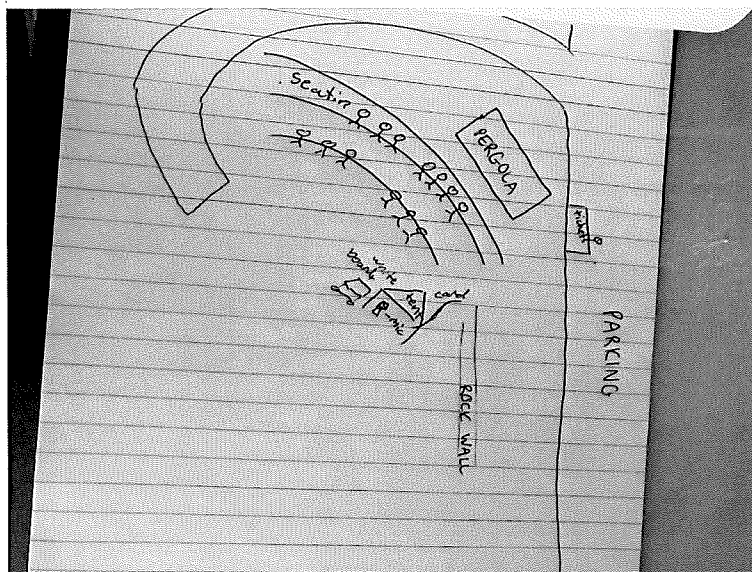 Seating
PERGOLA
tickets
PARKING
white
board
tent
mic
ROCK WALL